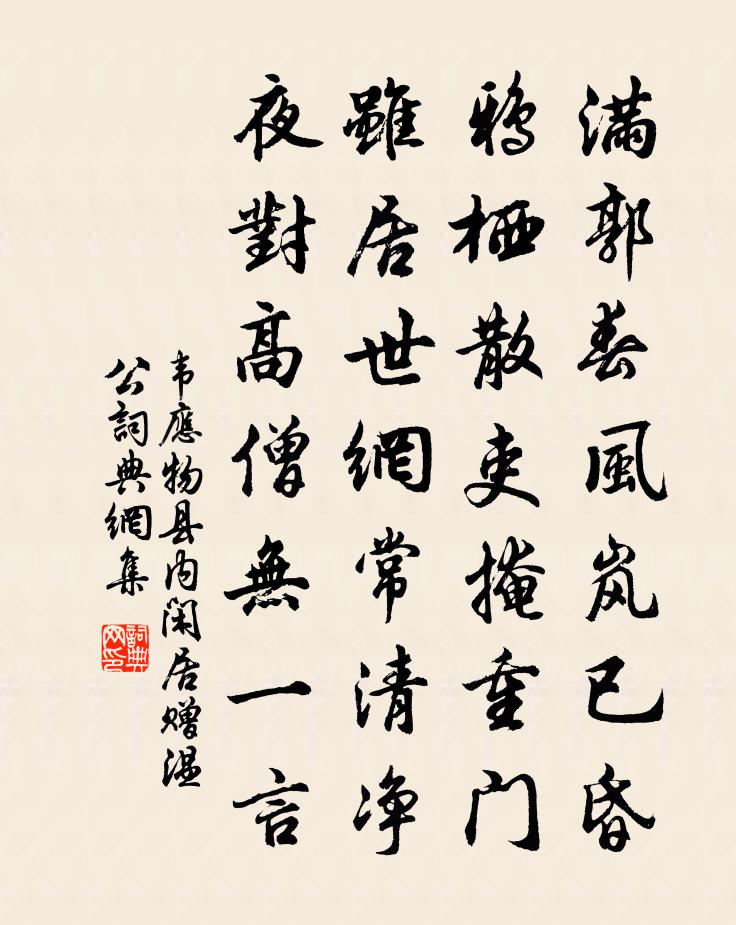 满郭春風岚已昏
鴉栖散吏掩重门
雖居世網常清净
夜對高僧無一言
韦應物县内闲居赠温
公詞典網集
詞典网印